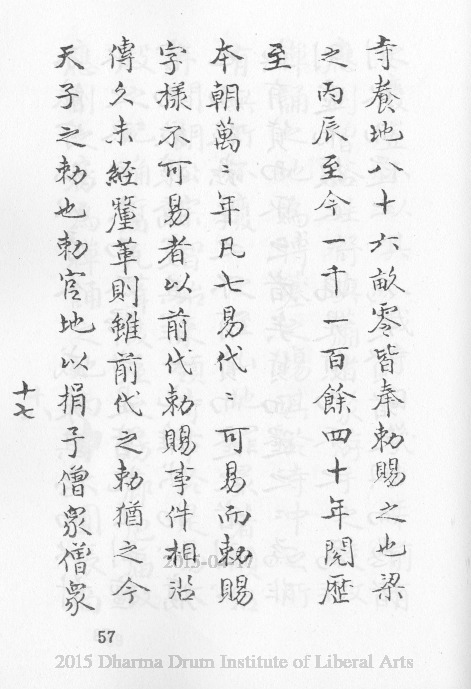 寺養地八十六畝零皆奉勅賜之也梁
之丙辰至今一千一百餘四十年閱歷
至
本朝萬〻年凡七易代〻可易而勅賜
字樣不可易者以前代勅賜事件相沿
傳久未經釐革則雖前代之勅猶之今
天子之勅也勅官地以捐子僧衆僧衆
十七
57
2015-04-17
2015 Dharma Drum Institute of Liberal Arts